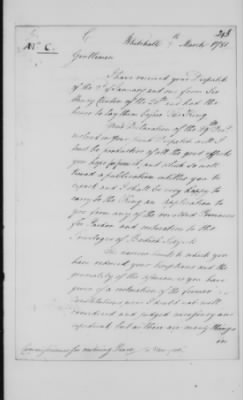 293
No. C.
Whitehall 7th March 1781.
Gentlemen
I have received your Dispatch
of the 3d of January and one from Sir
Henry Clinton of the 20th and had the
honor to lay them before The King
Your Declaration of the 29th Decr
inclosed in your Dispatch will I
trust be productive of all the good effects
you hope from it, and which so well
timed a publication entitles you to
expect and I shall be very happy to
carry to the King an Application to
you from any of the revolted Provinces
for Pardon and restoration to the
Privileges of British Subjects.
The narrow limits to which you
have reduced your Exceptions and the
generality of the assurances you have
given of a restoration of the former
Constitutions were I doubt not well
considered and judged necessary and
expedient but as there are many things
in
Commissioners for restoring Peace New York